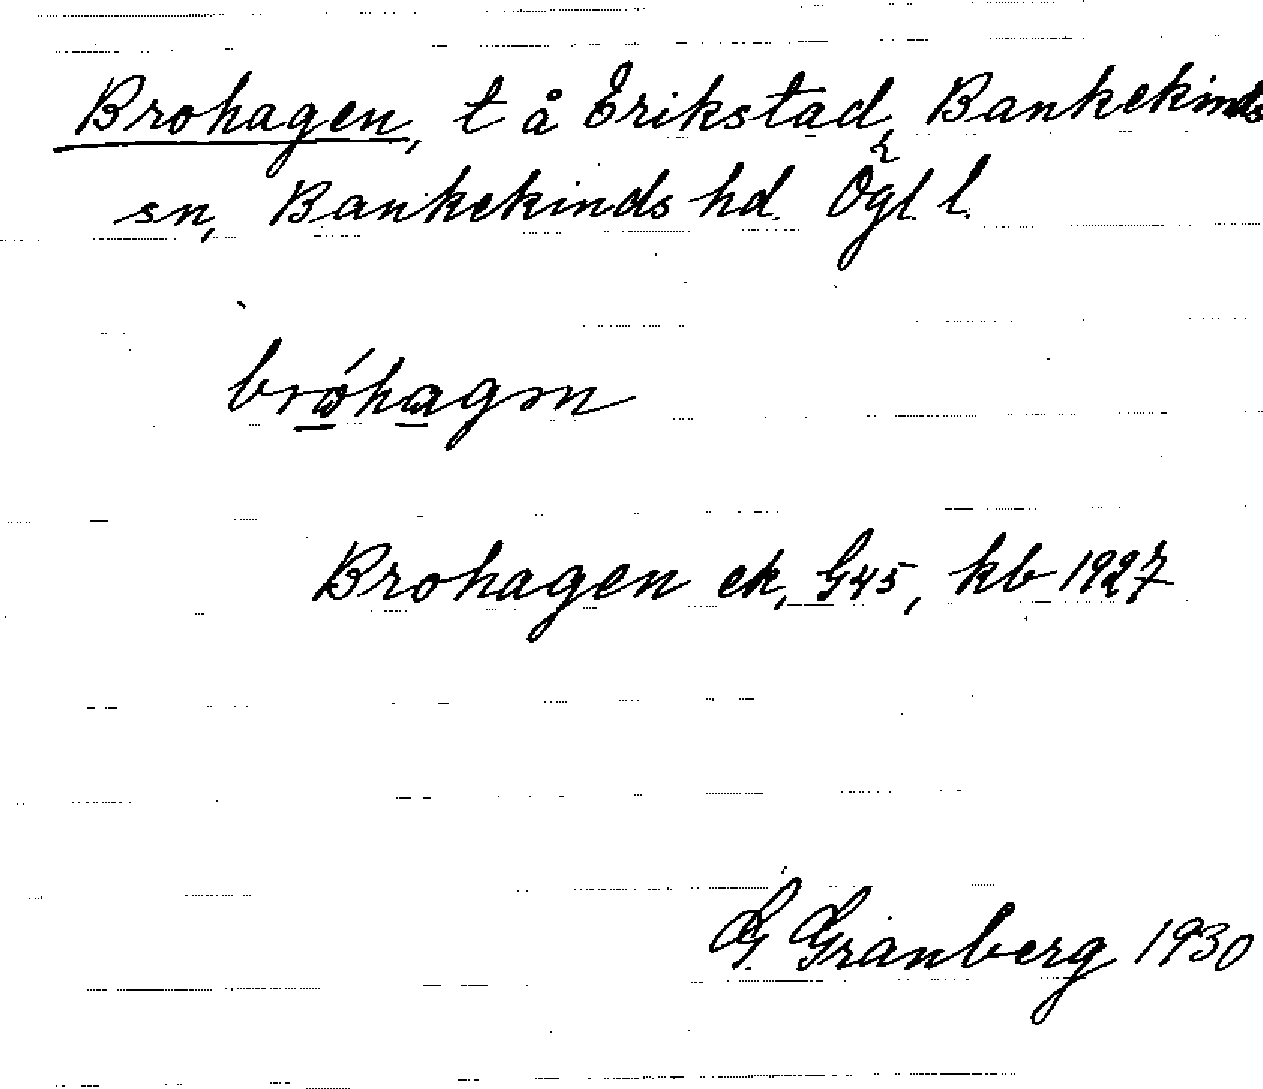 Brohagen, t å Erikstad, Bankekinds
sn, Bankekinds hd Ögl l.
bróhagən
Brohagen ek, G45, kb 1927
G Granberg 1930